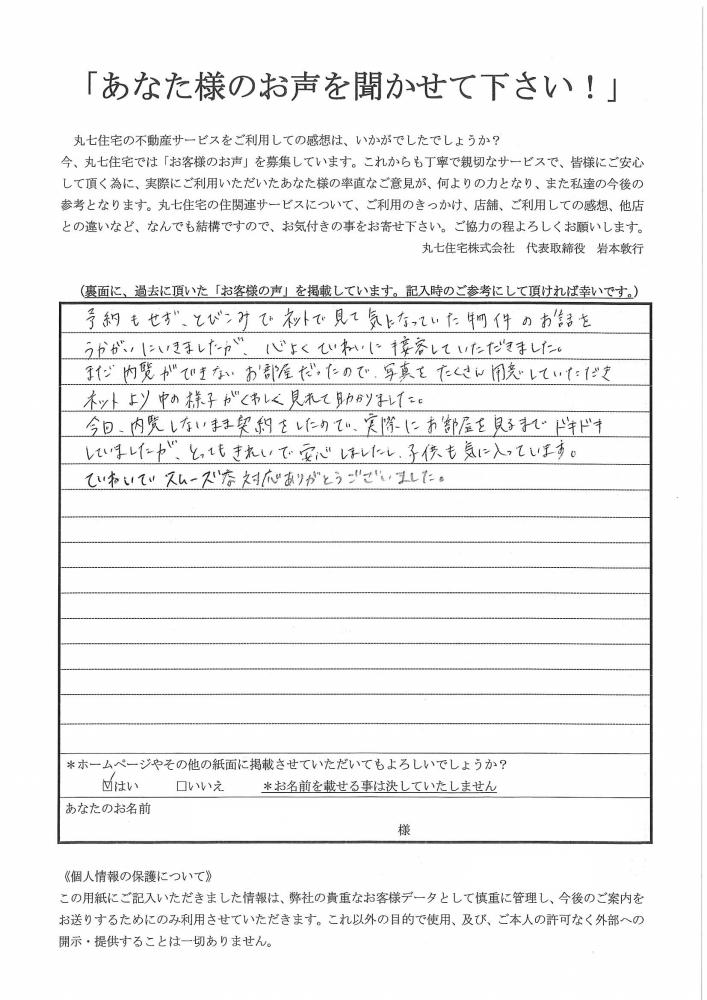 「あなた様のお声を聞かせて下さい！」
丸七住宅の不動産サービスをご利用しての感想は、いかがでしたでしょうか？
今、丸七住宅では「お客様のお声」を募集しています。これからも丁寧で親切なサービスで、皆様にご安心
して頂く為に、実際にご利用いただいたあなた様の率直なご意見が、何よりの力となり、また私達の今後の
参考となります。丸七住宅の住関連サービスについて、ご利用のきっかけ、店舗、ご利用しての感想、他店
との違いなど、なんでも結構ですので、お気付きの事をお寄せ下さい。ご協力の程よろしくお願いします。
丸七住宅株式会社　代表取締役　岩本敦行
（裏面に、過去に頂いた「お客様の声」を掲載しています。記入時のご参考にして頂ければ幸いです。）
予約もせず、とびこみでネットで見て気になっていた物件のお話を
うかがいにいきましたが、心よくていねいに接客していただきました。
まだ内覧ができないお部屋だったので、写真をたくさん用意していただき
ネットより中の様子がくわしく見れて助かりました。
今回、内覧しないまま契約をしたので、実際にお部屋を見るまでドキドキ
していましたが、とってもきれいで安心しましたし、子供も気に入っています。
ていねいでスムーズな対応ありがとうございました。
＊ホームページやその他の紙面に掲載させていただいてもよろしいでしょうか？
☑はい　□いいえ　＊お名前を載せる事は決していたしません
あなたのお名前
様
《個人情報の保護について》
この用紙にご記入いただきました情報は、弊社の貴重なお客様データとして慎重に管理し、今後のご案内を
お送りするためにのみ利用させていただきます。これ以外の目的で使用、及び、ご本人の許可なく外部への
開示・提供することは一切ありません。